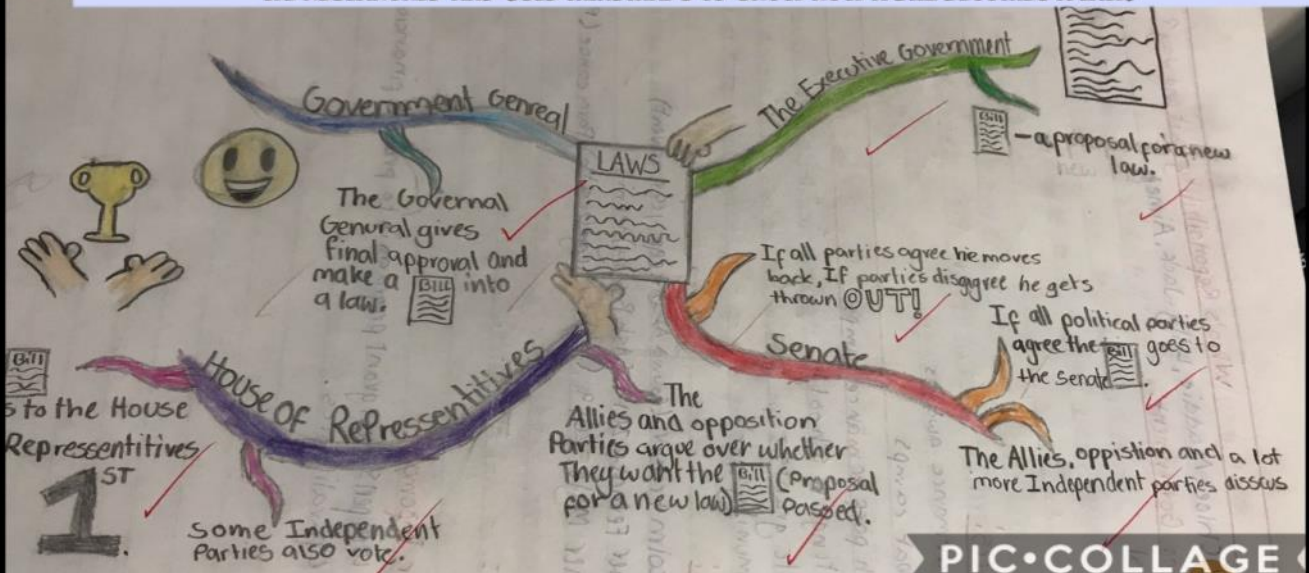 Government Genreal
The Governal
Genural gives
final approval and
make a Bill into
a law.
LAWS
The Executive Government
Bill - a proposal for a new
law.
If all parties agree he moves
back, If parties disagree he gets
thrown OUT!
Senate
If all political parties
agree the Bill goes to
the senate.
The Allies, oppistion and a lot
more Independent parties disscus
House of Repressentitives
Bill
s to the House
Repressentitives
1ST.
Some Independent
Parties also vote.
The
Allies and opposition
Parties argue over whether
They want the Bill (Proposal
for a new law) passed.
PIC•COLLAGE